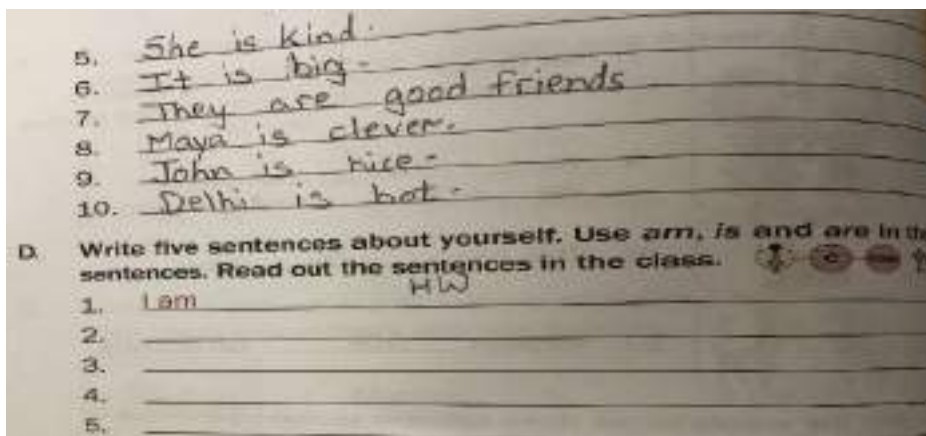 5. She is kind.
6. It is big.
7. They are good friends
8. Maya is clever.
9. John is nice.
10. Delhi is hot.
D. Write five sentences about yourself. Use am, is and are in the
sentences. Read out the sentences in the class.
HW
1. I am
2.
3.
4.
5.